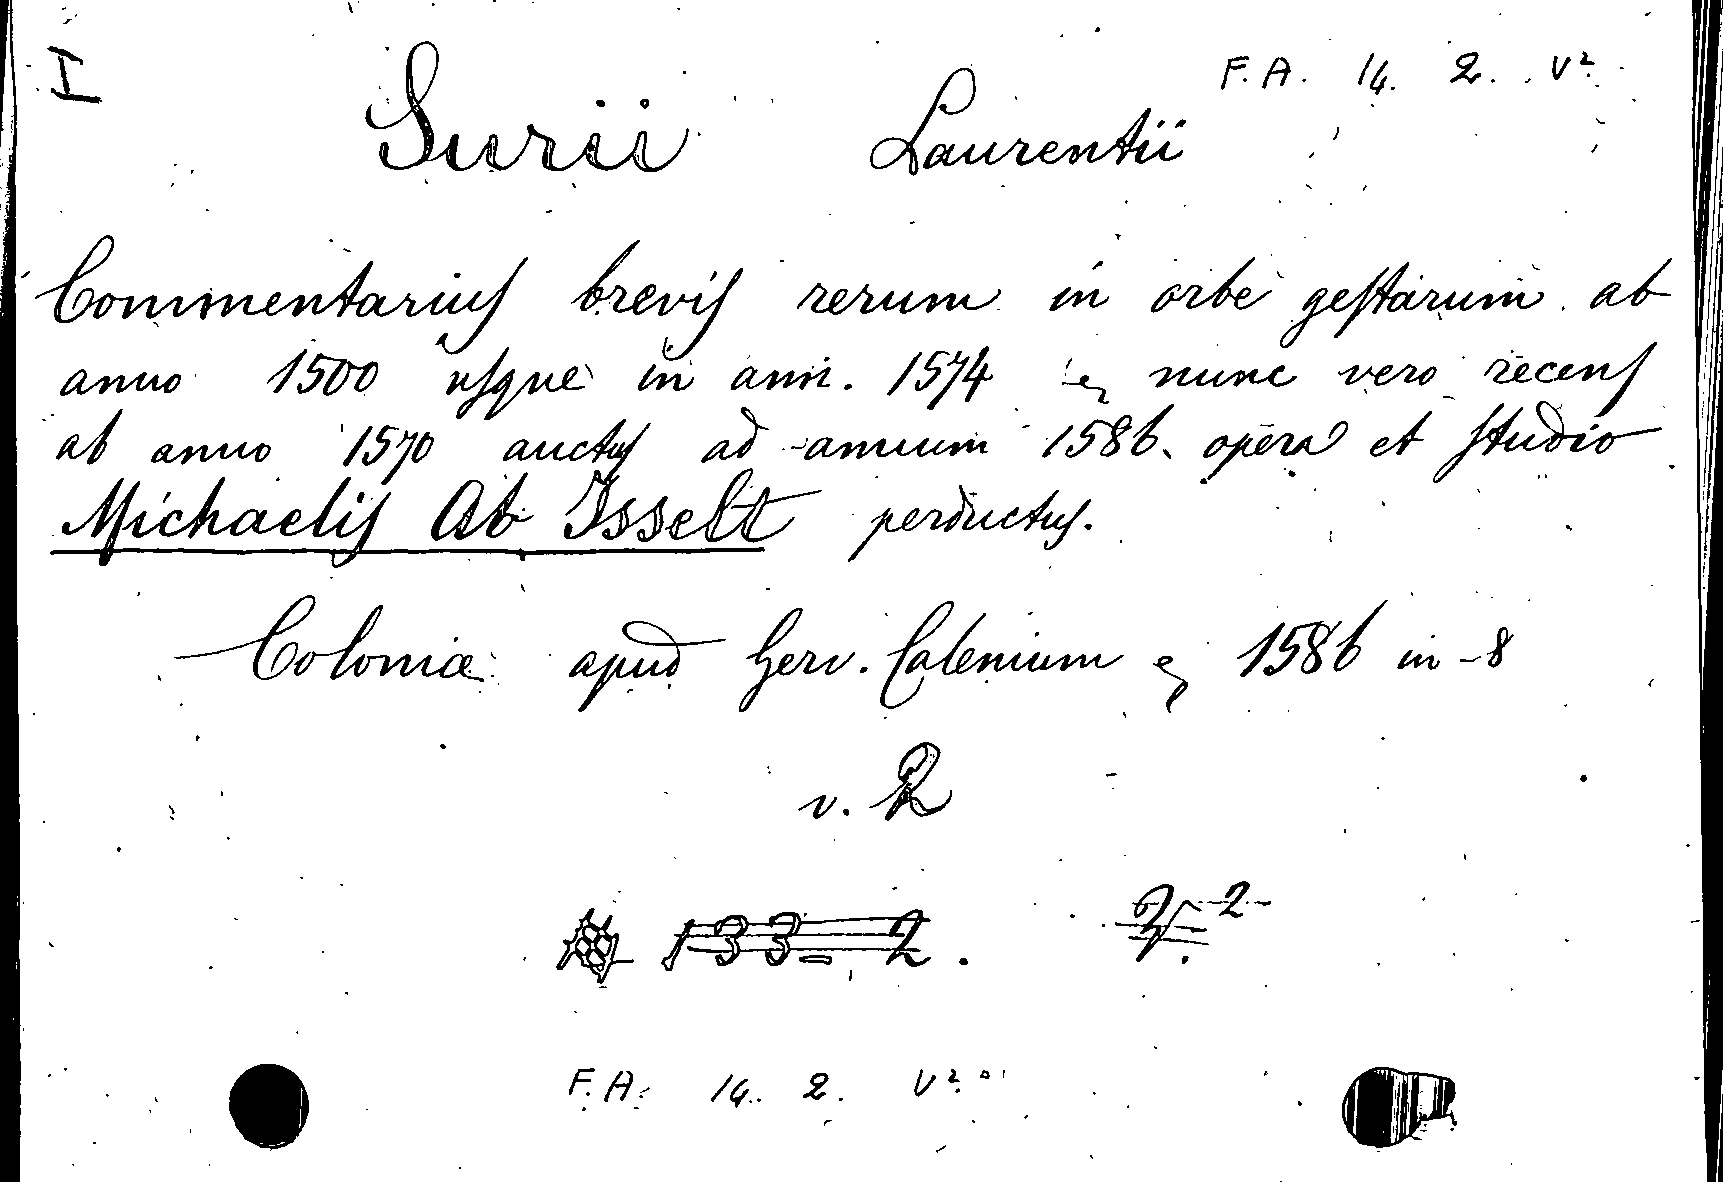 I
F. A. 14. 2. V²
Surii Laurentii
Commentarius brevis rerum in orbe gestarum ab
anno 1500 usque in ann. 1574 & nunc vero recens
ab anno 1570 auctus ad annum 1586. opera et studio
Michaelis Ab Isselt perductus.
Coloniæ apud Gerv. Calenium & 1586 in-8
v. 2
133-2.
F. A. 14. 2. V²